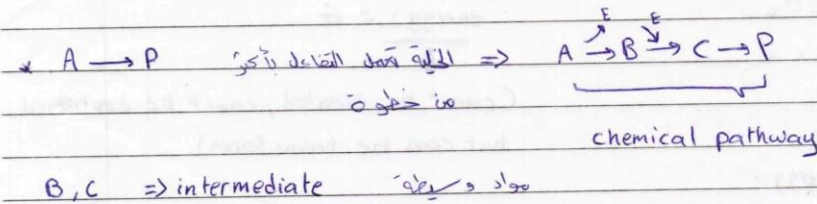 * A → P الخلية تعمل التفاعل بأكثر => A → B → C → P
E E
من خطوة
chemical pathway
B, C => intermediate مواد وسيطة